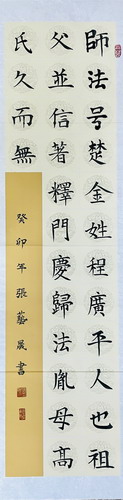 師法号楚金姓程廣平人也祖
父並信著釋門慶歸法胤母高
氏久而無
癸卯年張藝晟書